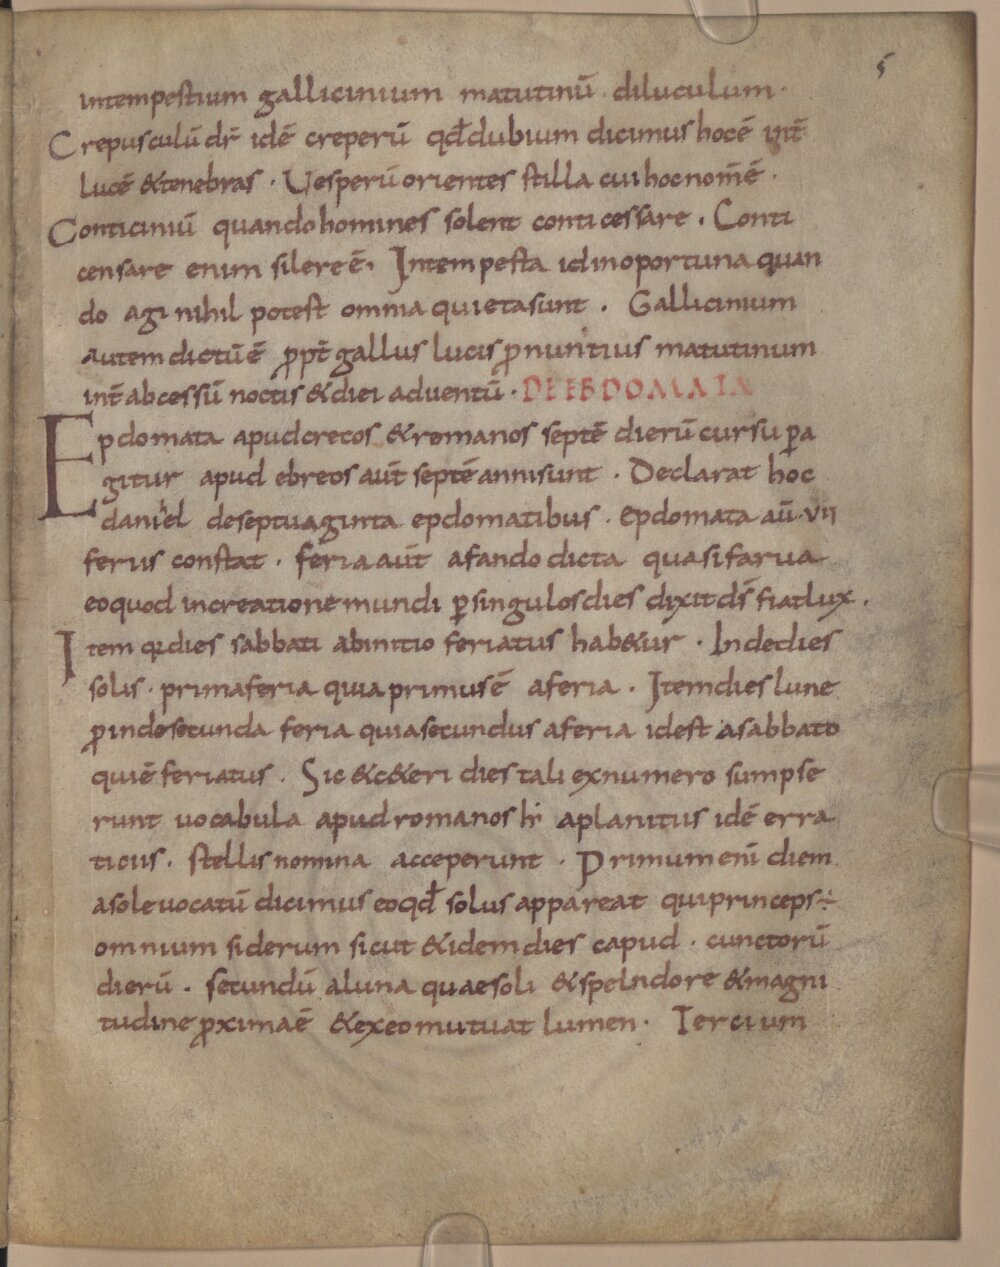 5
intempestium gallicinium matutinū diluculum·
Crepusculū dr̄ idē creperū qđ dubium dicimus hoc ē int̄
lucē & tenebras · Uesperū orientes stilla cui hoc nom̄ ē ·
Conticiniū quando homines solent conticessare . Conti
censare enim silere ē· Intempesta id inoportuna quan
do agi nihil potest omnia quieta sunt . Gallicinium
autem dictū ē ꝓpt̄ gallus lucis ꝓnuntius matutinum
int̄ abcessū noctis & diei aduentū · DE EBDOMADA
Epdomata apud crecos & romanos septē dierū cursu ꝑa
gitur apud ebreos aut̄ septē anni sunt · Declarat hoc
danihel de septuaginta epdomatibus · epdomata aū· vii
feriis constat · feria aut̄ a fando dicta quasi farua
eo quod in creatione mundi ꝑ singulos dies dixit d̄s fiat lux .
Item qi dies sabbati ab initio feriatus hab&ur · Inde dies
solis · prima feria quia primus ē a feria . Item dies lune
ꝓinde secunda feria quia secundus a feria id est a sabbato
qui ē feriatus . Sic & c&eri dies tali ex numero sumpse
runt uocabula apud romanos hi aplanitus idē erra
ticiis . stellis nomina acceperunt · Primum eni diem
a sole uocatū dicimus eo qđ solus appareat qui princeps ÷
omnium siderum sicut & idem dies capud · cunctorū
dierū . secundū a luna quae soli & spelndore & magni
tudine ꝓxima ē & ex eo mutuat lumen · Tercium